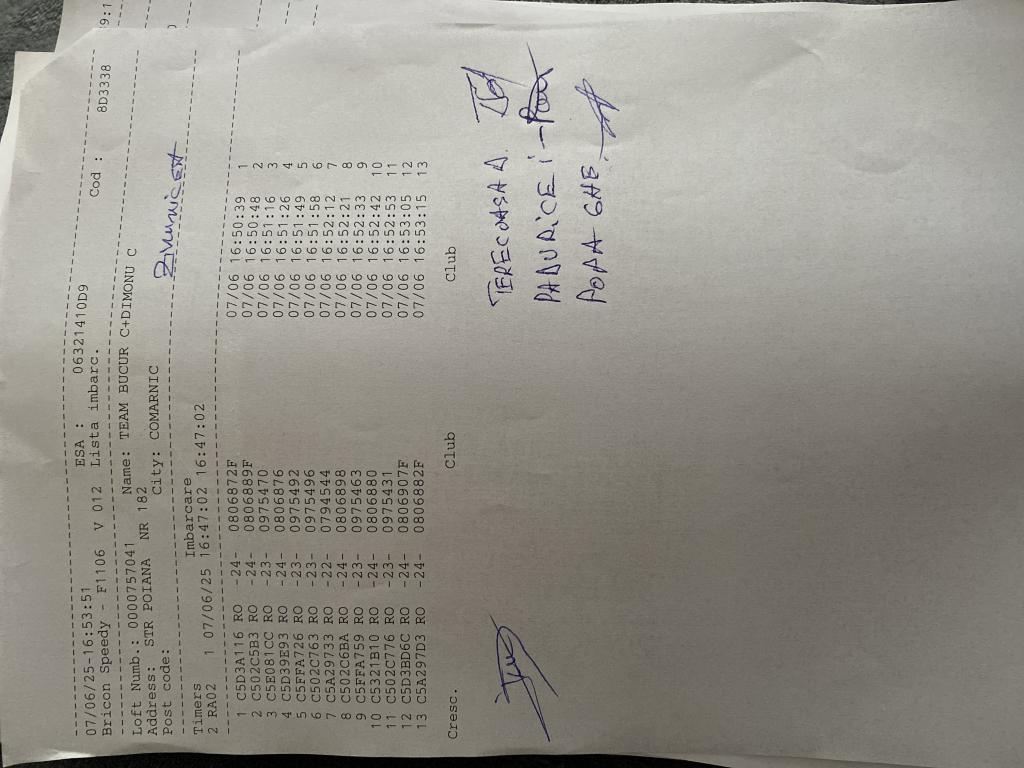 07/06/25-16:53:51 ESA : 06321410D9
Bricon Speedy - F1106 V 012 Lista imbarc. Cod : 8D3338
Loft Numb.: 0000757041 Name: TEAM BUCUR C+DIMONU C
Address: STR POIANA NR 182
Post code: City: COMARNIC
Timers Imbarcare
2 RA02 1 07/06/25 16:47:02 16:47:02
1 C5D3A116 RO -24- 0806872F 07/06 16:50:39 1
2 C502C5B3 RO -24- 0806889F 07/06 16:50:48 2
3 C5E081CC RO -23- 0975470 07/06 16:51:16 3
4 C5D39E93 RO -24- 0806876 07/06 16:51:26 4
5 C5FFA726 RO -23- 0975492 07/06 16:51:49 5
6 C502C763 RO -23- 0975496 07/06 16:51:58 6
7 C5A29733 RO -22- 0794544 07/06 16:52:12 7
8 C502C6BA RO -24- 0806898 07/06 16:52:21 8
9 C5FFA759 RO -23- 0975463 07/06 16:52:33 9
10 C5321B10 RO -24- 0806880 07/06 16:52:42 10
11 C502C776 RO -23- 0975431 07/06 16:52:53 11
12 C5D3BD6C RO -24- 0806907F 07/06 16:53:05 12
13 C5A297D3 RO -24- 0806882F 07/06 16:53:15 13
Cresc. Club Club
PADURICE i
POPA GHE.